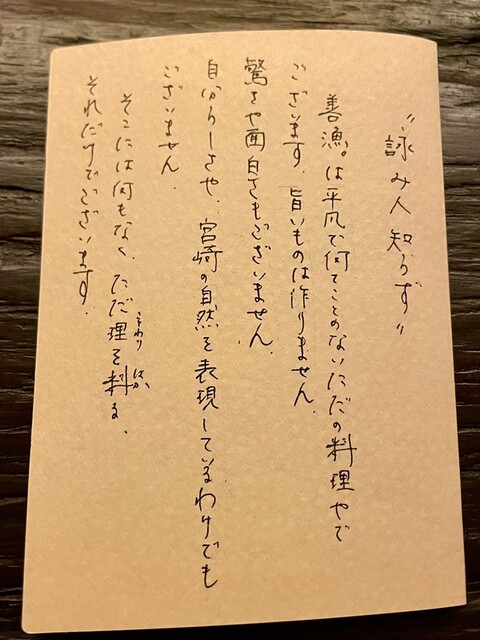 “詠み人知らず”
善漁。は平凡で何てことのないただの料理やで
ございます。旨いものは作りません。
驚きや面白さもございません。
自分らしさや、宮崎の自然を表現しているわけでも
ございません。
そこには何もなく、ただ理を料る、
ことわり はか
それだけでございます。